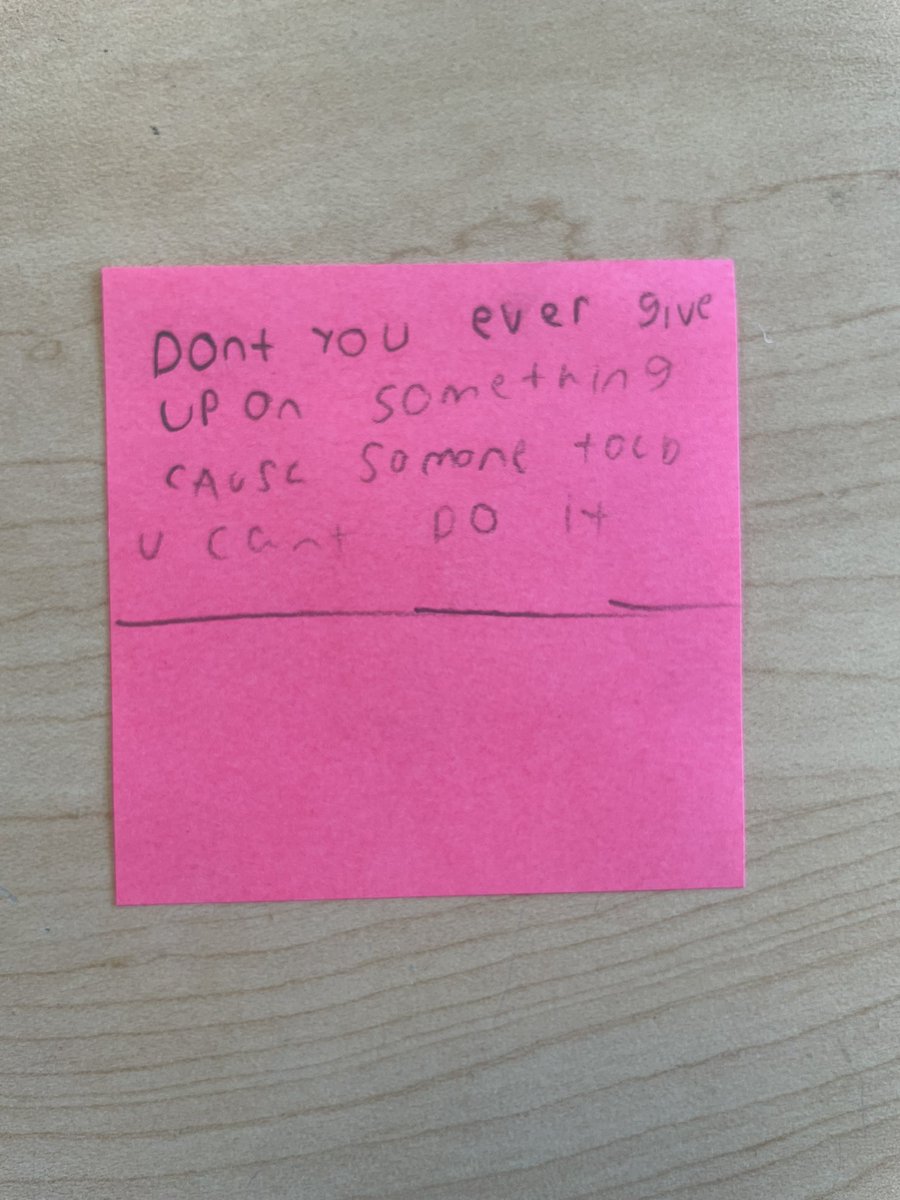 DOnt YOU ever give
UP On something
CAUSE Somone tOLD
U Cant DO it